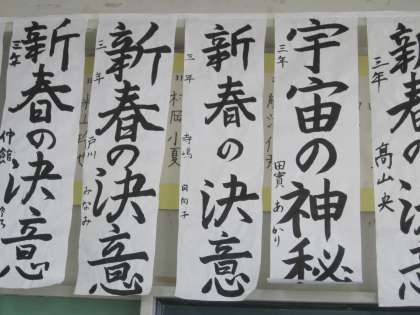 新春の決意
三年
高山央
宇宙の神秘
三年
田實あかり
新春の決意
三年
寺嶋日向子
新春の決意
三年
戸川みなみ
村岡小夏
新春の決意
三年
仲舘